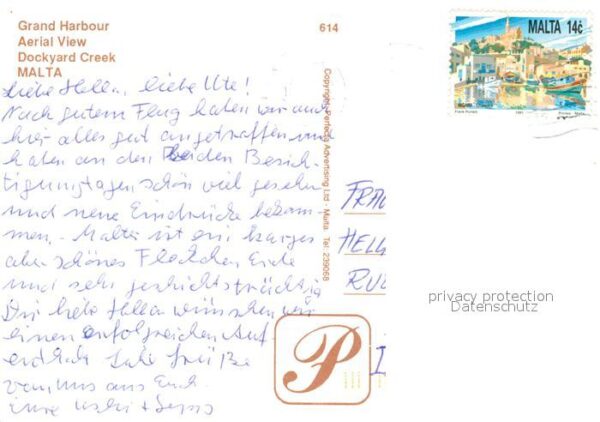 Grand Harbour
Aerial View
Dockyard Creek
MALTA
614
MALTA 14c
Copyright Perfecta Advertising Ltd - Malta. Tel: 239068
Liebe Hella, liebe Ute!
Nach gutem Flug haben wir auch
hier alles gut angetroffen und
haben an den beiden Besich-
tigungstagen schön viel gesehen
und neue Eindrücke bekom-
men. - Malta ist ein karges
aber schönes Fleckchen Erde
und sehr geschichtsträchtig
Dir liebe Hella wünschen wir
einen erfolgreichen Auf-
enthalt. Liebe Grüße
von uns aus Euch.
Eure
FRAU
HELL
RU
P
I
privacy protection
Datenschutz